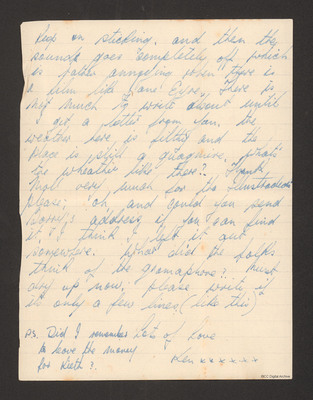 keep on sticking. and then the
sounds goes completely off which
is rather annoying when there is
a film like "Jane Eyre". There is
not much to write about until
I get a letter from you. the
weather here is filthy and the
place is still a quagmire. whats
the wheather like there?. Thank
very much for his
please; oh, and could you send
address if you can find
it, I think I left it out
somewhere. What did the folks
think of the gramophone?. Must
dry up now. Please write if
it only a few lines (like this)
P.S. Did I remember Lots of Love
to leave the money Ken xxxxxx
for Keith?.
IBCC Digital Archive